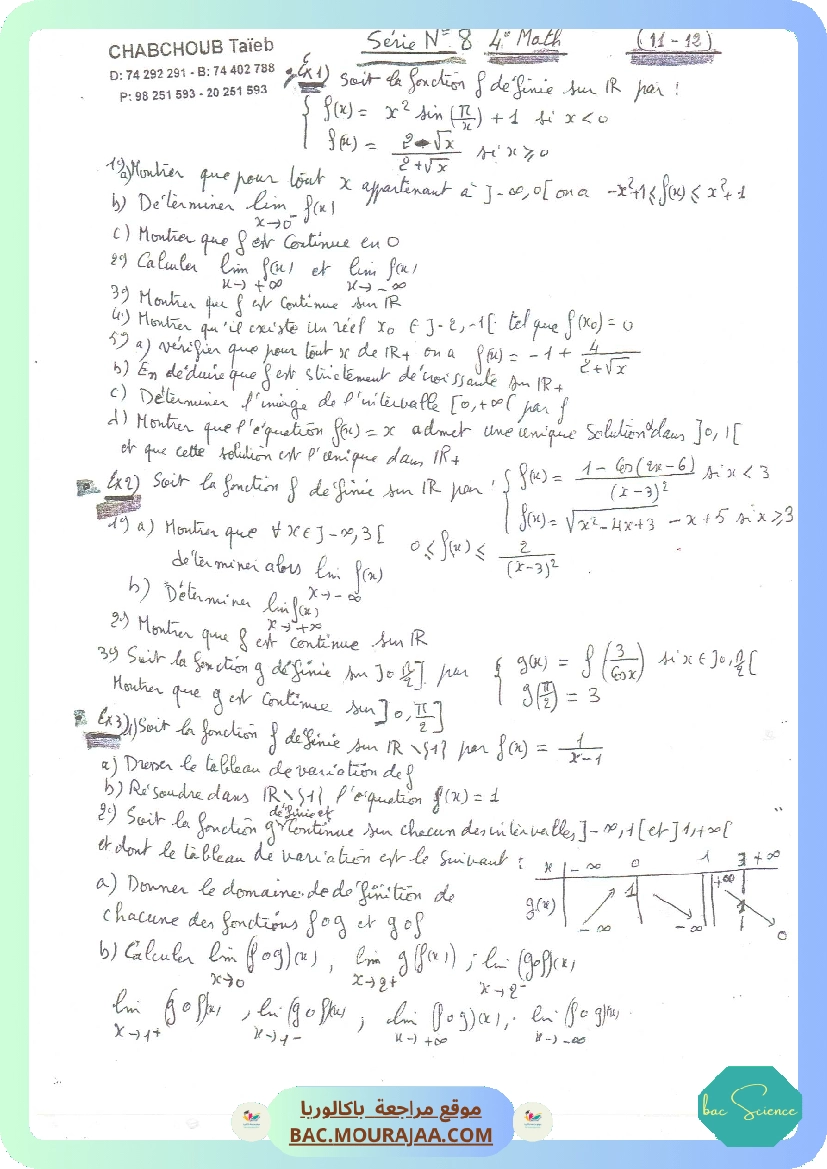 CHABCHOUB Taïeb
D: 74 292 291 - B: 74 402 788
P: 98 251 593 - 20 251 593
Série N° 8 4° Math (11-12)
Ex1) Soit la fonction f définie sur IR par :
{ f(x) = x² sin(π/x) + 1 si x < 0
f(x) = (2-√x)/(2+√x) si x ≥ 0
1°) a) Montrer que pour tout x appartenant à ]-∞,0[ on a -x²+1 ≤ f(x) ≤ x²+1
b) Déterminer lim x→0⁻ f(x)
c) Montrer que f est continue en 0
2°) Calculer lim x→+∞ f(x) et lim x→-∞ f(x)
3°) Montrer que f est continue sur IR
4°) Montrer qu'il existe un réel x₀ ∈ ]-2,-1[ tel que f(x₀) = 0
5°) a) vérifier que pour tout x de IR+ on a f(x) = -1 + 4/(2+√x)
b) En déduire que f est strictement décroissante sur IR+
c) Déterminer l'image de l'intervalle [0,+∞[ par f
d) Montrer que l'équation f(x) = x admet une unique solution α dans ]0,1[
et que cette solution est l'unique dans IR+
Ex2) Soit la fonction f définie sur IR par : { f(x) = (1 - Cos(2x-6))/(x-3)² si x < 3
f(x) = √(x²-4x+3) - x + 5 si x ≥ 3
1°) a) Montrer que ∀ x ∈ ]-∞,3[ 0 ≤ f(x) ≤ 2/(x-3)²
déterminer alors lim x→-∞ f(x)
b) Déterminer lim x→+∞ f(x)
2°) Montrer que f est continue sur IR
3°) Soit la fonction g définie sur ]0,π/2] par { g(x) = f(3/Cosx) si x ∈ ]0,π/2[
g(π/2) = 3
Montrer que g est continue sur ]0,π/2]
Ex3) 1) Soit la fonction f définie sur IR \ {1} par f(x) = 1/(x-1)
a) Dresser le tableau de variation de f
b) Résoudre dans IR \ {1} l'équation f(x) = 1
2°) Soit la fonction g définie et continue sur chacun des intervalles ]-∞,1[ et ]1,+∞[
et dont le tableau de variation est le suivant :
x -∞ 0 1 3 +∞
g(x) -∞ 1 -∞ +∞ 1 0
a) Donner le domaine de définition de
chacune des fonctions fog et gof
b) Calculer lim x→0 (fog)(x), lim x→2+ g(f(x)) ; lim x→2⁻ (gof)(x)
lim x→1+ (gof)(x), lim x→1- (gof)(x) ; lim x→+∞ (fog)(x), lim x→-∞ (fog)(x)
bac Science
موقع مراجعة باكالوريا
BAC.MOURAJAA.COM